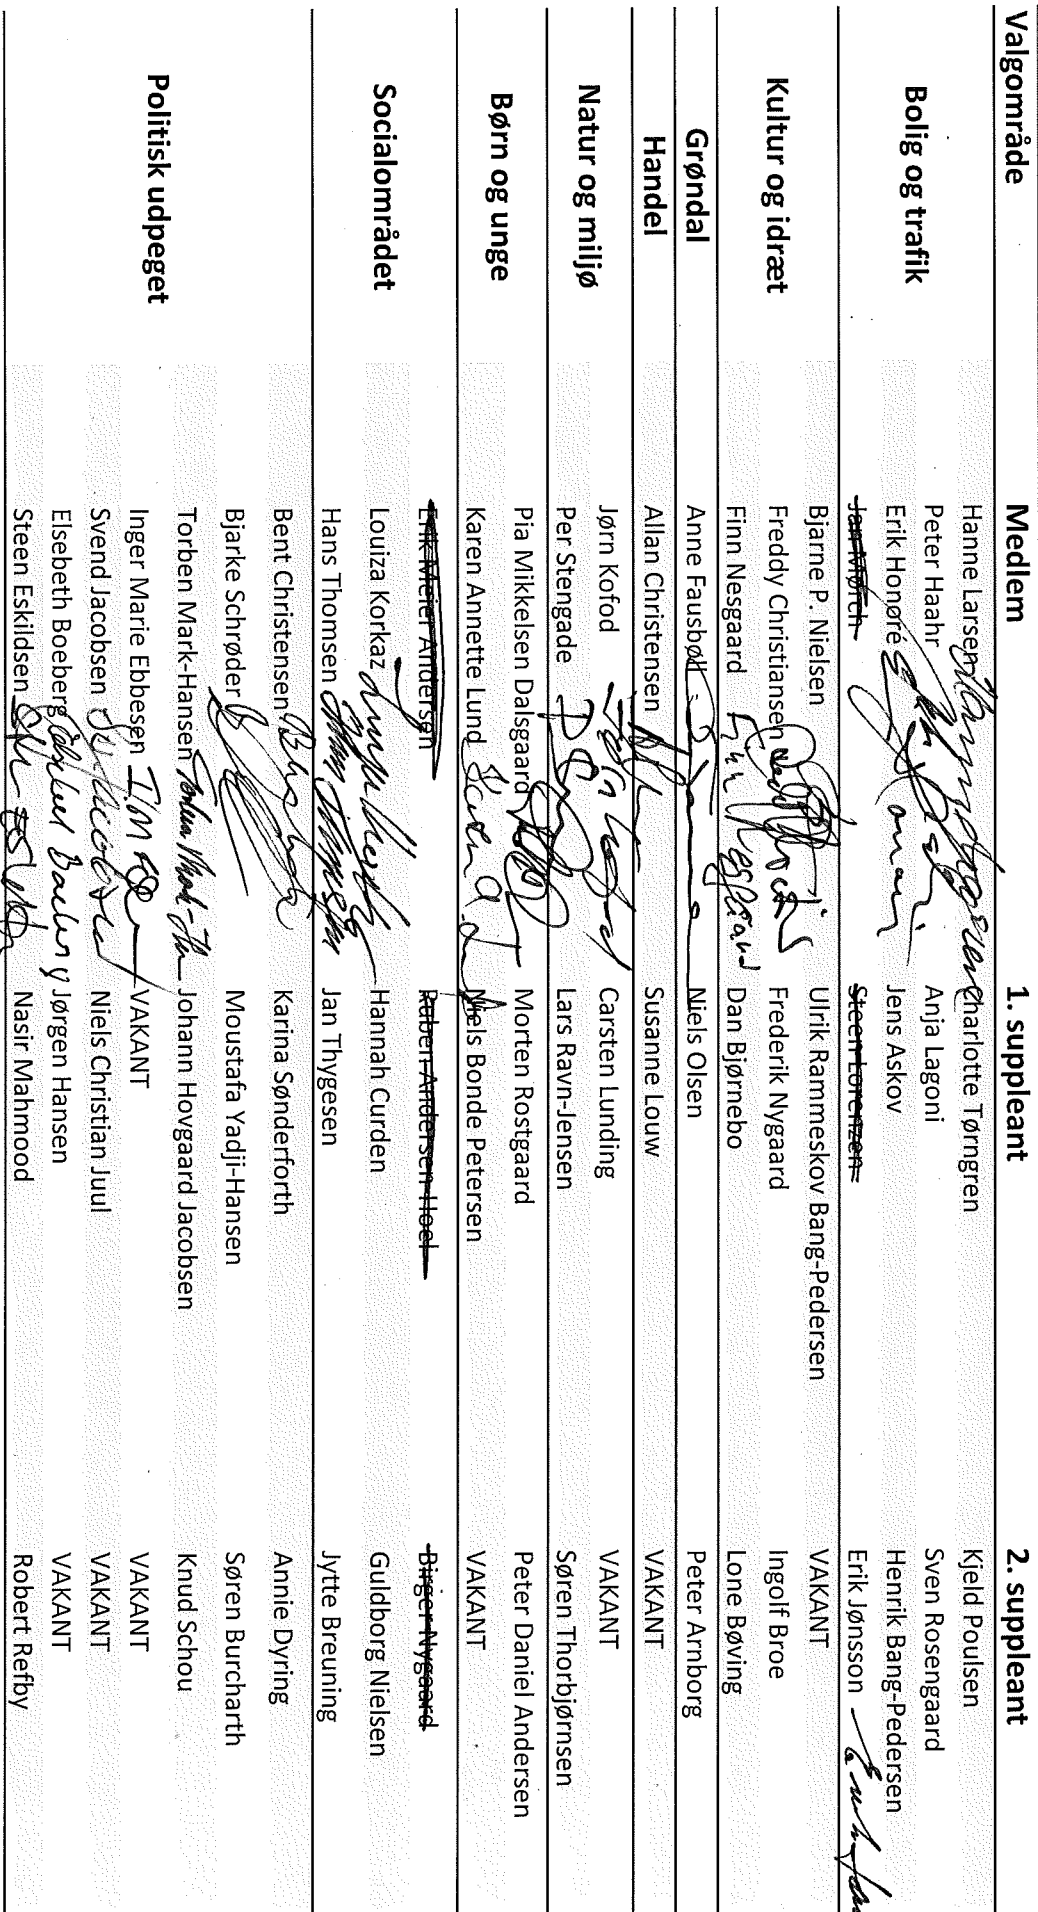 Valgområde Medlem 1. suppleant 2. suppleant
Hanne Larsen Charlotte Tørngren Kjeld Poulsen
Peter Haahr Anja Lagoni Sven Rosengaard
Bolig og trafik
Erik Honoré Jens Askov Henrik Bang-Pedersen
Jan Mørch Steen Lorenzen Erik Jønsson
Bjarne P. Nielsen Ulrik Rammeskov Bang-Pedersen VAKANT
Kultur og idræt Freddy Christiansen Frederik Nygaard Ingolf Broe
Finn Nesgaard Dan Bjørnebo Lone Bøving
Grøndal Anne Fausbøll Niels Olsen Peter Arnborg
Handel Allan Christensen Susanne Louw VAKANT
Jørn Kofod Carsten Lunding VAKANT
Natur og miljø
Per Stengade Lars Ravn-Jensen Søren Thorbjørnsen
Pia Mikkelsen Dalsgaard Morten Rostgaard Peter Daniel Andersen
Børn og unge
Karen Annette Lund Niels Bonde Petersen VAKANT
Erik Meier Andersen Ruben Andersen Hoel Birger Nygaard
Socialområdet Louiza Korkaz Hannah Curden Guldborg Nielsen
Hans Thomsen Jan Thygesen Jytte Breuning
Bent Christensen Karina Sønderforth Annie Dyring
Bjarke Schrøder Moustafa Yadji-Hansen Søren Burcharth
Torben Mark-Hansen Johann Hovgaard Jacobsen Knud Schou
Politisk udpeget
Inger Marie Ebbesen VAKANT VAKANT
Svend Jacobsen Niels Christian Juul VAKANT
Elsebeth Boeberg Jørgen Hansen VAKANT
Steen Eskildsen Nasir Mahmood Robert Refby